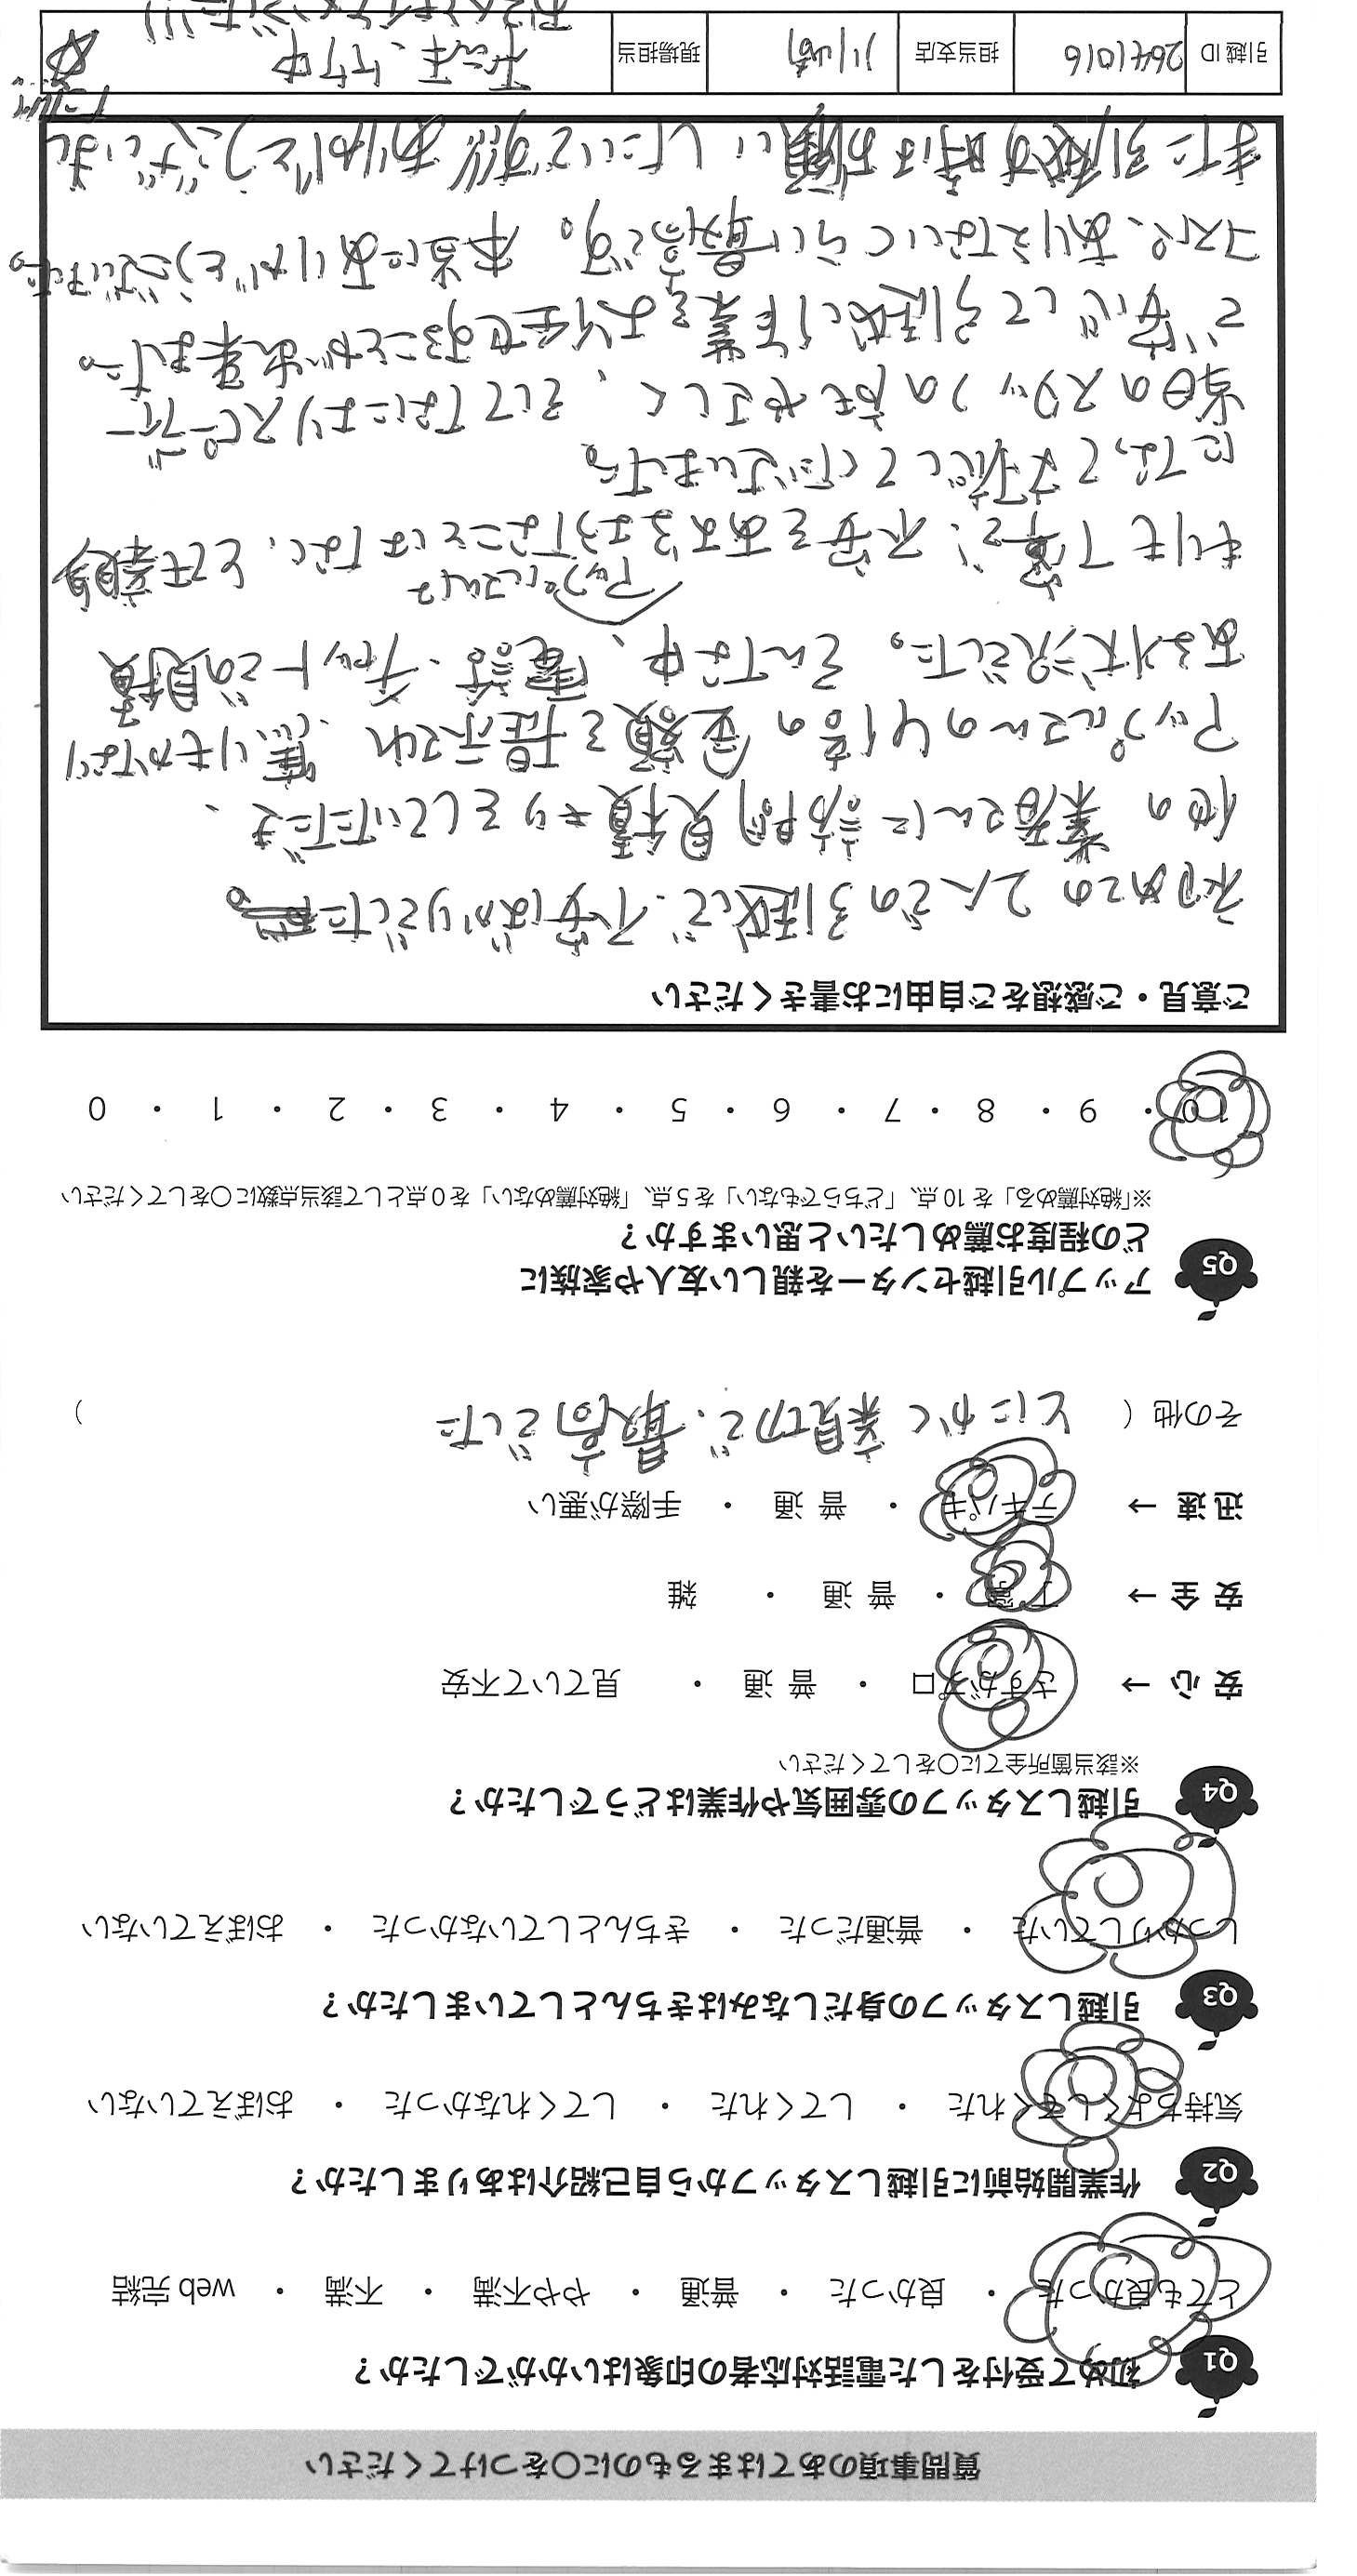 質問事項のあてはまるものに○をつけてください
Q1 初めて受付をした電話対応者の印象はいかがでしたか？
とても良かった ・ 良かった ・ 普通 ・ やや不満 ・ 不満 ・ web 完結
Q2 作業開始前に引越しスタッフから自己紹介はありましたか？
気持ちよくしてくれた ・ してくれた ・ してくれなかった ・ おぼえていない
Q3 引越しスタッフの身だしなみはきちんとしていましたか？
しっかりしていた ・ 普通だった ・ きちんとしていなかった ・ おぼえていない
Q4 引越しスタッフの雰囲気や作業はどうでしたか？
※該当箇所全てに○をしてください
安 心 → さすがプロ ・ 普 通 ・ 見ていて不安
安 全 → 丁寧 ・ 普 通 ・ 雑
迅 速 → テキパキ ・ 普 通 ・ 手際が悪い
その他（ とにかく親切で、最高でした ）
Q5 アップル引越センターを親しい友人や家族に
どの程度お薦めしたいと思いますか？
※「絶対薦める」を 10 点、「どちらでもない」を 5 点、「絶対薦めない」を 0 点として該当点数に○をしてください
10 ・ 9 ・ 8 ・ 7 ・ 6 ・ 5 ・ 4 ・ 3 ・ 2 ・ 1 ・ 0
ご意見・ご感想をご自由にお書きください
初めての2人での引越で、不安ばかりでした。
他の業者さんに訪問見積もりをしていただき、
アップルさんの4倍の金額を提示され、焦りもかなり
ある状況でした。そんな中、電話・チャットでの見積
もりも丁寧で、不安をあおるようなことはない、とても親身
アップルさんは
になって対応してくださいました。
当日のスタッフの方もやさしく、そしてなによりスピーディー
で安心して引越し作業をお任せすることが出来ました。
コスパ、ありえないくらい最高です。本当にありがとうございました。
また引越す時はお願いしたいです!!! ありがとうございまし
引越 ID 2641016 担当支店 川崎 現場担当 竹中